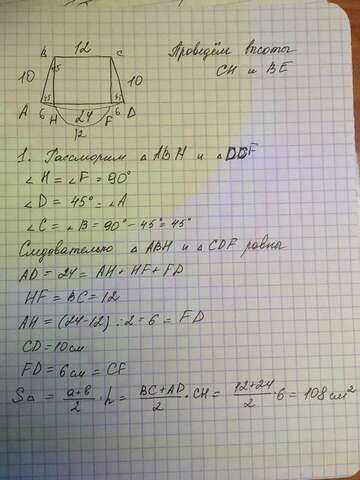 12
B C
Проведём высоты
CH и BE
10 45 10
A 6 45 H 24 F 45 6 D
12
1. Рассморим △ ABH и △ DCF
∠H = ∠F = 90°
∠D = 45° = ∠A
∠C = ∠B = 90° - 45° = 45°
Следовательно △ ABH и △ CDF равны
AD = 24 = AH + HF + FD
HF = BC = 12
AH = (24-12) : 2 = 6 = FD
CD = 10 см
FD = 6 см = CF
Sa = a+b/2 · h = BC+AD/2 · CH = 12+24/2 · 6 = 108 см²